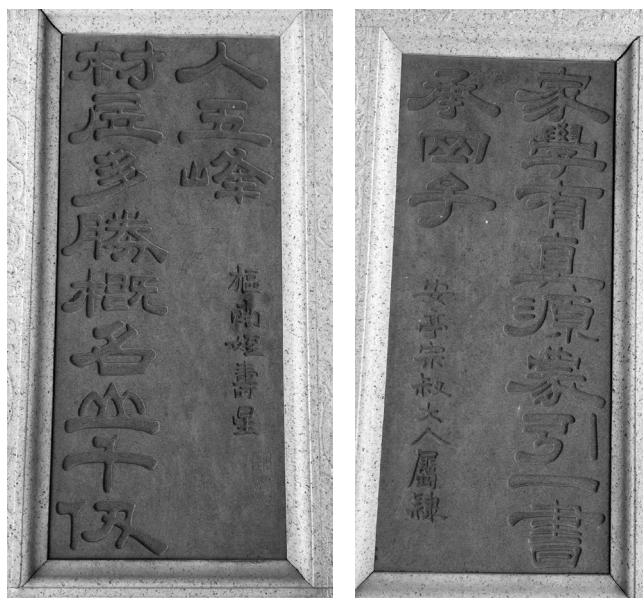 家學有真源蒙引一書
承四子
安亭宗叔大人屬隸
村居多勝概名山千仞
入五峰
南姪壽星